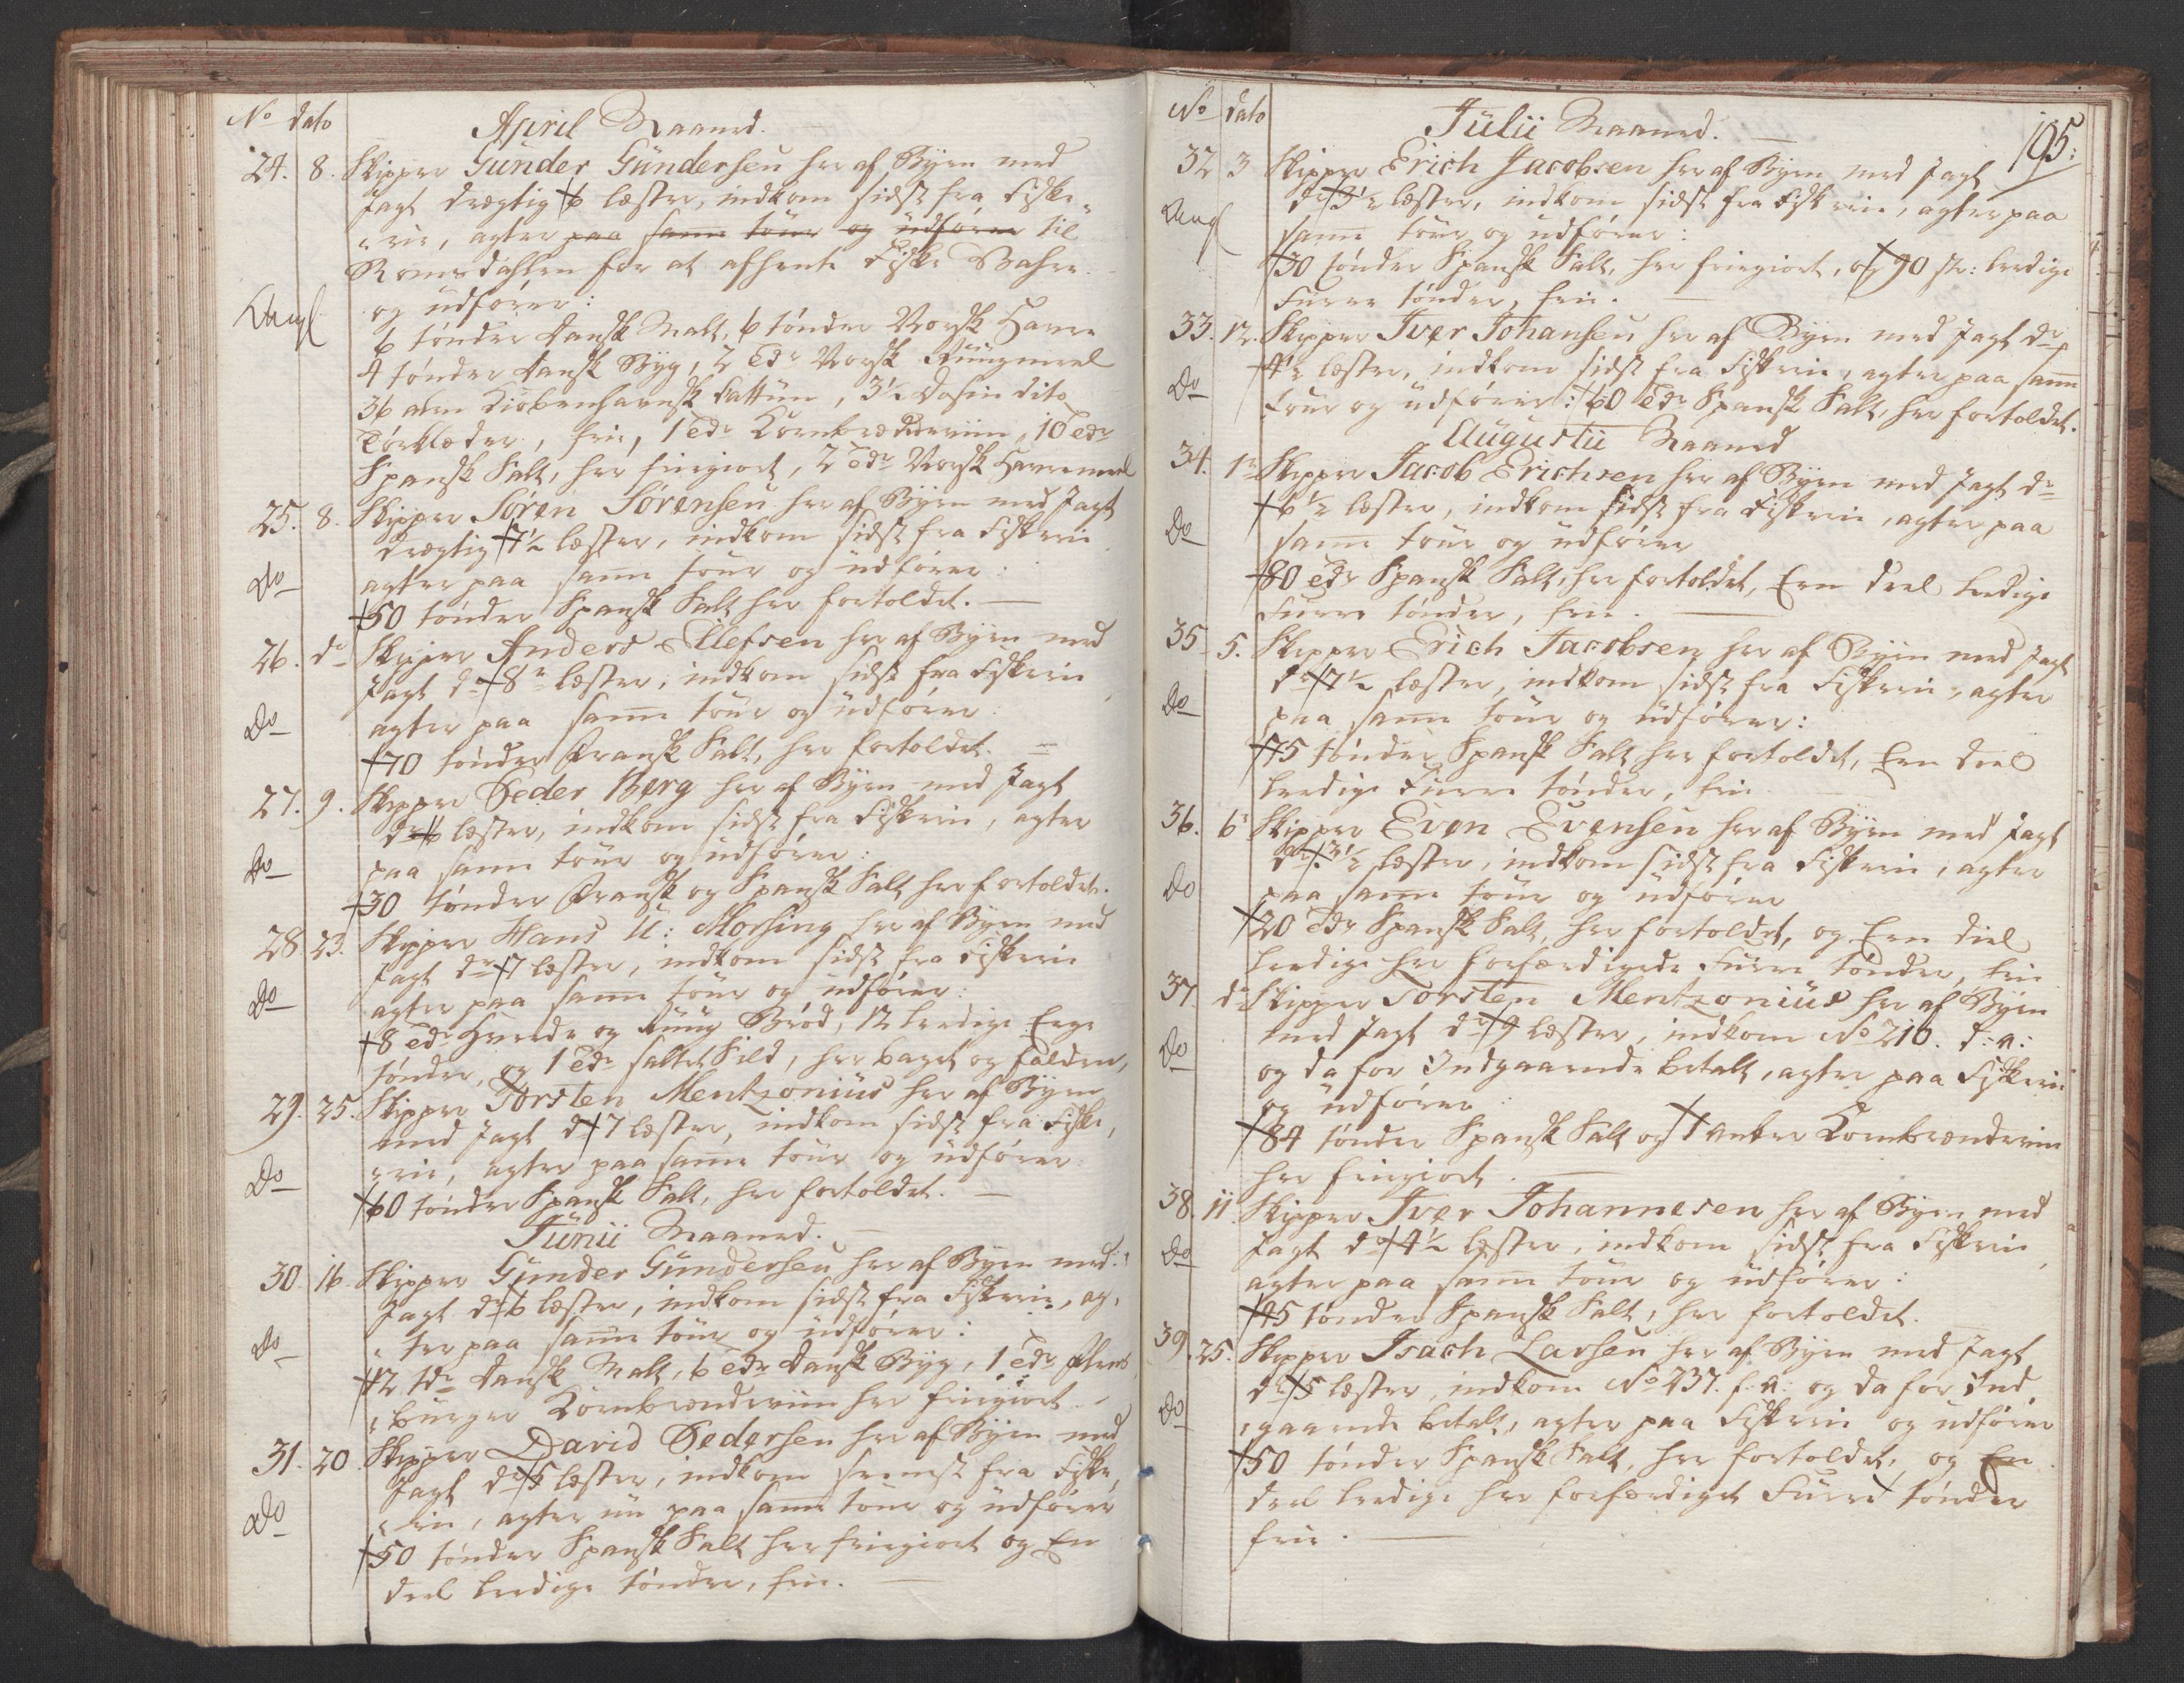 No dato
April Maaned.
24. 8. Skipper Gunder Gundersen her af Byen med
Jagt drægtig 6 læster, indkom sidst fra Fiske-
rie, agter paa samme tour og udfører til
Romsdahlen for at afhente Fiske Vahre
og udfører:
6 tønder Dansk Malt, 6 tønder Norsk Havre
4 tønder Dansk Byg, 2 Tdr Norsk Ruugmeel
36 alen Kiøbenhavnsk Cattun, 3½ Dosin dito
Tørklæder, frie, 1 Tdr Kornbrændeviin, 10 Tdr
Spansk Salt, her friegiort, 2 Tdr Norsk Havremeel
25. 8. Skipper Søren Sørensen her af Byen med Jagt
drægtig 7½ læster, indkom sidst fra Fiskerie
Do agter paa samme tour og udfører:
50 tønder Spansk Salt her fortoldet.
26. do Skipper Anders Ellefsen her af Byen med
Jagt dr 8 læster, indkom sidst fra Fiskerie
Do agter paa samme tour og udfører:
70 tønder Fransk Salt, her fortoldet.
27. 9. Skipper Peder Berg her af Byen med Jagt
dr 6 læster, indkom sidst fra Fiskerie, agter
Do paa samme tour og udfører:
30 tønder Fransk og Spansk Salt her fortoldet.
28. 23. Skipper Hans U: Morsing her af Byen med
Jagt dr 7 læster, indkom sidst fra Fiskerie
Do agter paa samme tour og udfører:
8 Tdr Hvede og Ruug Brød, 12 ledige Eege
tønder, og 1 Tdr saltet Sild, her baget og falden,
29. 25. Skipper Torsten Mentzonius her af Byen
med Jagt dr 7 læster, indkom sidst fra Fiske,
Do rie, agter paa samme tour og udfører
60 tønder Spansk Salt, her fortoldet.
Junii Maaned.
30. 16. Skipper Gunder Gundersen her af Byen med
Jagt dr 6 læster, indkom sidst fra Fiskerie, ag,
Do ter paa samme tour og udfører:
12 tdr Dansk Malt, 6 Tdr Dansk Byg, 1 Tdr Flens
burger Kornbrændeviin her friegiort
31. 20. Skipper David Pedersen her af Byen med
Jagt dr 5 læster, indkom senest fra Fiske,
Do rie, agter nu paa samme tour og udfører
50 tønder Spansk Salt her friegiort og En
deel ledige tønder, frie.
No dato
Julii Maaned.
195:
32 3 Skipper Erich Jacobsen her af Byen med Jagt
dr 3½ læster, indkom sidst fra Fiskerie, agter paa
samme tour og udfører:
30 tønder Spansk Salt, her friegiort, og 90 st: ledige
Furre tønder, frie.
33. 12. Skipper Iver Johansen her af Byen med Jagt dr
4½ læster, indkom sidst fra Fiskerie, agter paa samme
Do tour og udfører: 60 Tdr Spansk Salt, her fortoldet.
Augustii Maaned
34. 1e Skipper Jacob Erichsen her af Byen med Jagt dr
6½ læster, indkom sidst fra Fiskerie, agter paa
Do samme tour og udfører
80 Tdr Spansk Salt, her fortoldet, Een deel ledige
Furre tønder, frie.
35 5. Skipper Erich Jacobsen her af Byen med Jagt
dr 7½ læster, indkom sidst fra Fiskerie, agter
Do paa samme tour og udfører:
75 tønder Spansk Salt her fortoldet, Een deel
ledige Furre tønder, frie
36. 6 Skipper Even Evensen her af Byen med Jagt
dr 3½ læster, indkom sidst fra Fiskerie, agter
Do paa samme tour og udfører
20 Tdr Spansk Salt, her fortoldet, og Een deel
ledige her forfærdigede Furre tønder, frie
37. do Skipper Torsten Mentzonius her af Byen
med Jagt dr 9 læster, indkom No 210. f: a:
Do og da for Indgaaende betalt, agter paa Fiskerie
og udfører:
84 tønder Spansk Salt og 1 anker Kornbrændeviin
her friegiort.
38. 11 Skipper Iver Johannesen her af Byen med
Do Jagt dr 4½ læster, indkom sidst fra Fiskerie,
agter paa samme tour og udfører:
45 tønder Spansk Salt, her fortoldet.
39. 25. Skipper Isach Larsen her af Byen med Jagt
dr 5 læster, indkom No 237. f: a: og da for Ind,
Do gaaende betalt, agter paa Fiskerie og udfører
50 tønder Spansk Salt, her fortoldet, og En
deel ledige her forfærdiget Furre tønder
frie.